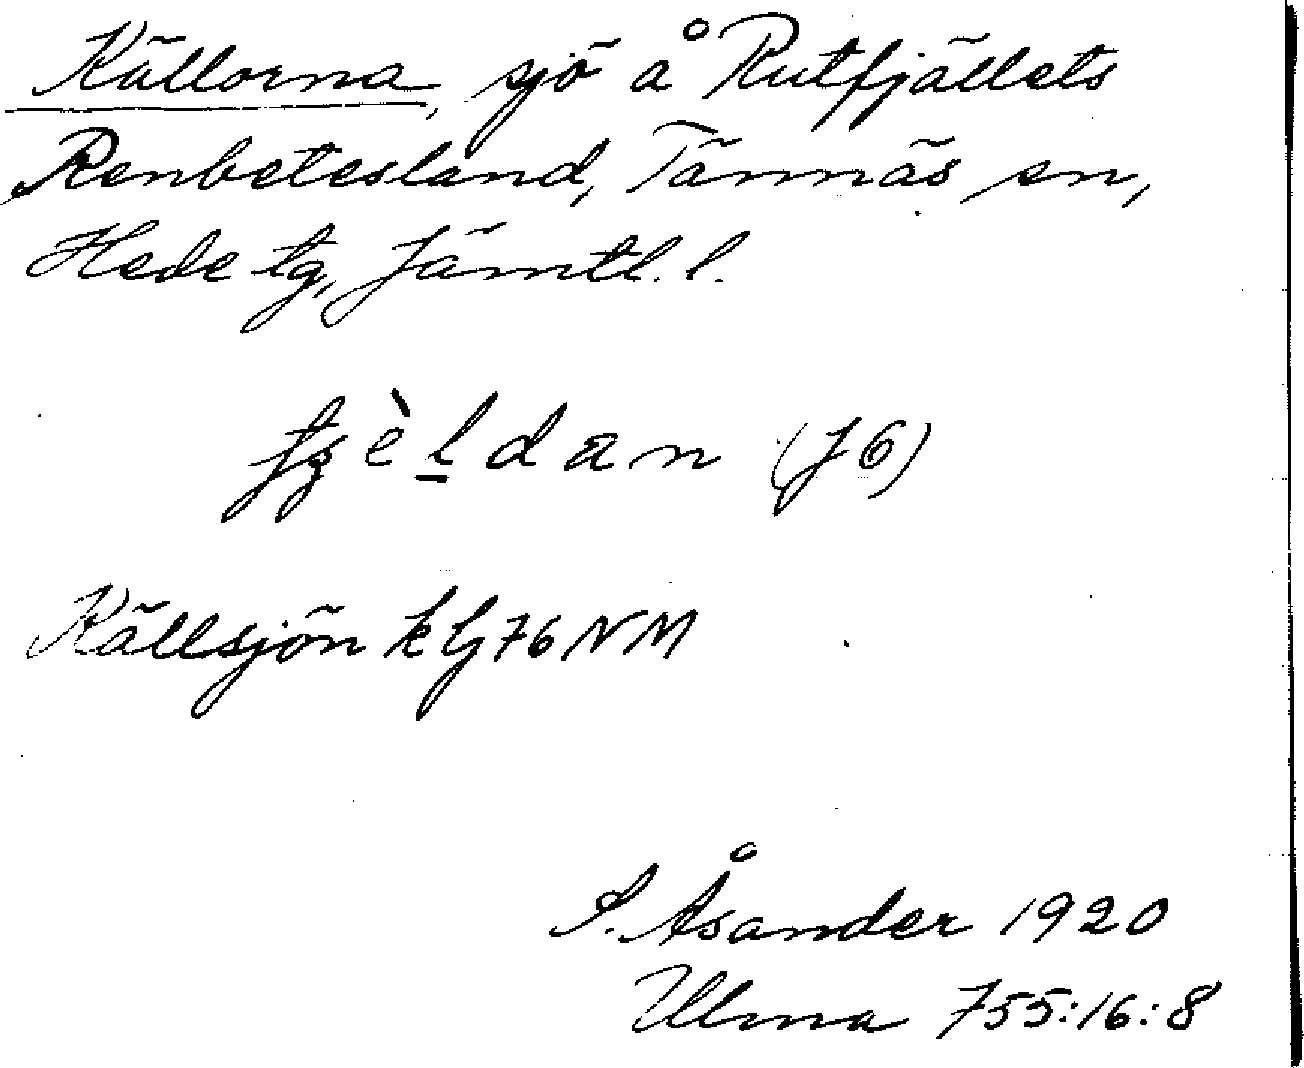 Källorna, sjö å Rutfjällets
Renbetesland, Tännäs sn,
Hede tg, Jämtl. l.
(J6)
Källsjön kbj 76 NM
S. Åsander 1920
Ulma 755:16:8